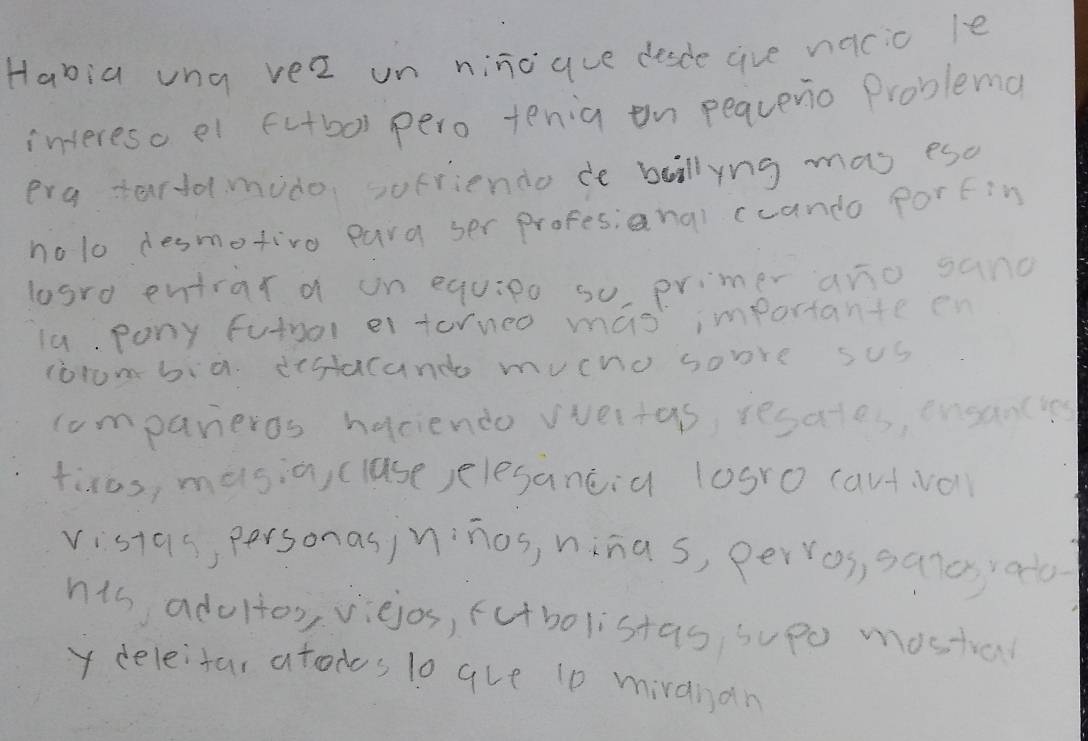 Habia una vez un niño que desde que nacio le
intereso el futbol pero tenia un pequeño Problema
era tartamudo, sufriendo de bullyng mas eso
nolo desmotivo para ser profesional cuando por fin
logro entrar a un equipo su primer año gano
la pony futbol el torneo más importante en
colombia. destacando mucho sobre sus
compañeros haciendo vueltas, regates, enganches
tiros, magia, clase, elegancia logro cautivar
vistas, personas, niños, niñas, perros, gatos, rato-
nes, adultos, viejos, futbolistas, supo mostrar
y deleitar atodos lo que lo miraban